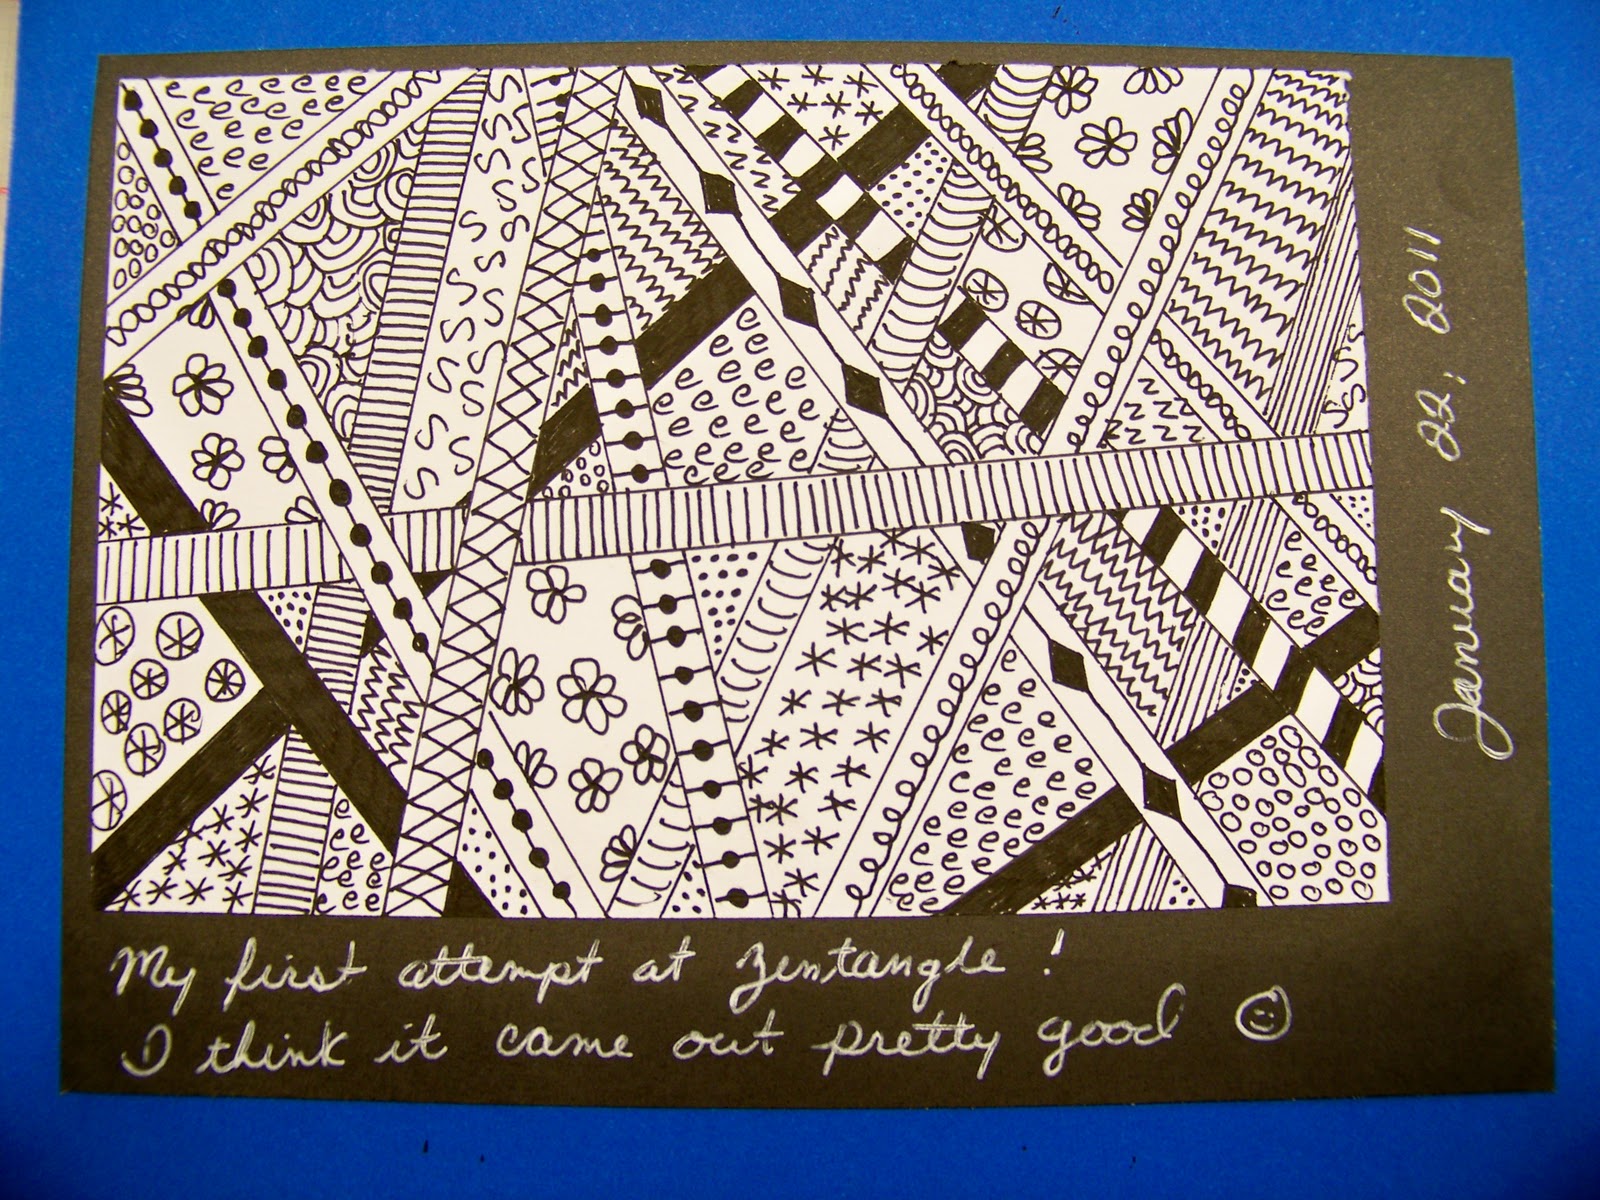 My first attempt at Zentangle!
I think it came out pretty good ☺
January 22, 2011